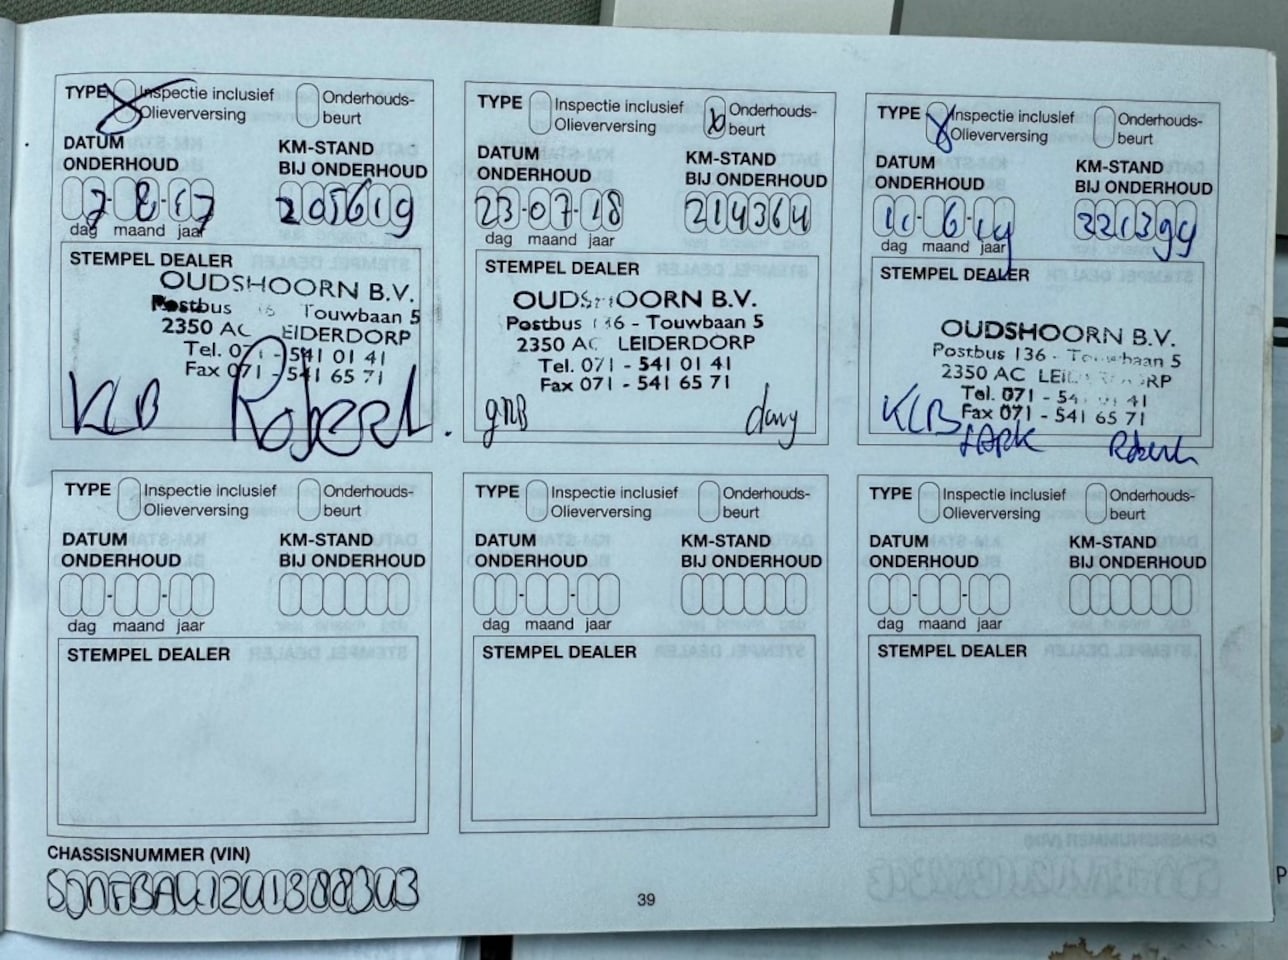 TYPE Inspectie inclusief Olieverversing Onderhouds-beurt
DATUM ONDERHOUD KM-STAND BIJ ONDERHOUD
7-8-17 205619
dag maand jaar
STEMPEL DEALER
OUDSHOORN B.V.
Postbus Touwbaan 5
2350 AC EIDERDORP
Tel. 071 - 541 01 41
Fax 071 - 541 65 71
KLB Robert
TYPE Inspectie inclusief Olieverversing Onderhouds-beurt
DATUM ONDERHOUD KM-STAND BIJ ONDERHOUD
23-07-18 214364
dag maand jaar
STEMPEL DEALER
OUDSHOORN B.V.
Postbus 136 - Touwbaan 5
2350 AC LEIDERDORP
Tel. 071 - 541 01 41
Fax 071 - 541 65 71
grB davy
TYPE Inspectie inclusief Olieverversing Onderhouds-beurt
DATUM ONDERHOUD KM-STAND BIJ ONDERHOUD
11-6-19 221394
dag maand jaar
STEMPEL DEALER
OUDSHOORN B.V.
Postbus 136 - Touwbaan 5
2350 AC LEIDERDORP
Tel. 071 - 541 01 41
Fax 071 - 541 65 71
KLB
Robert
TYPE Inspectie inclusief Olieverversing Onderhouds-beurt
DATUM ONDERHOUD KM-STAND BIJ ONDERHOUD
dag maand jaar
STEMPEL DEALER
TYPE Inspectie inclusief Olieverversing Onderhouds-beurt
DATUM ONDERHOUD KM-STAND BIJ ONDERHOUD
dag maand jaar
STEMPEL DEALER
TYPE Inspectie inclusief Olieverversing Onderhouds-beurt
DATUM ONDERHOUD KM-STAND BIJ ONDERHOUD
dag maand jaar
STEMPEL DEALER
CHASSISNUMMER (VIN)
SJNFBAK12U1388343
39